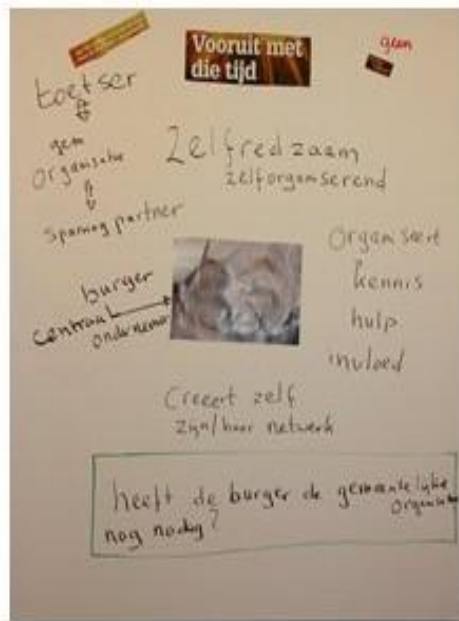 Vooruit met
die tijd
geen
toetser
gem
organisatie
sparring partner
Zelfredzaam
zelforganiserend
burger
centraal
ondernemer
organiseert
kennis
hulp
invloed
Creëert zelf
zijn/haar netwerk
heeft de burger de gemeentelijke
organisatie
nog nodig?